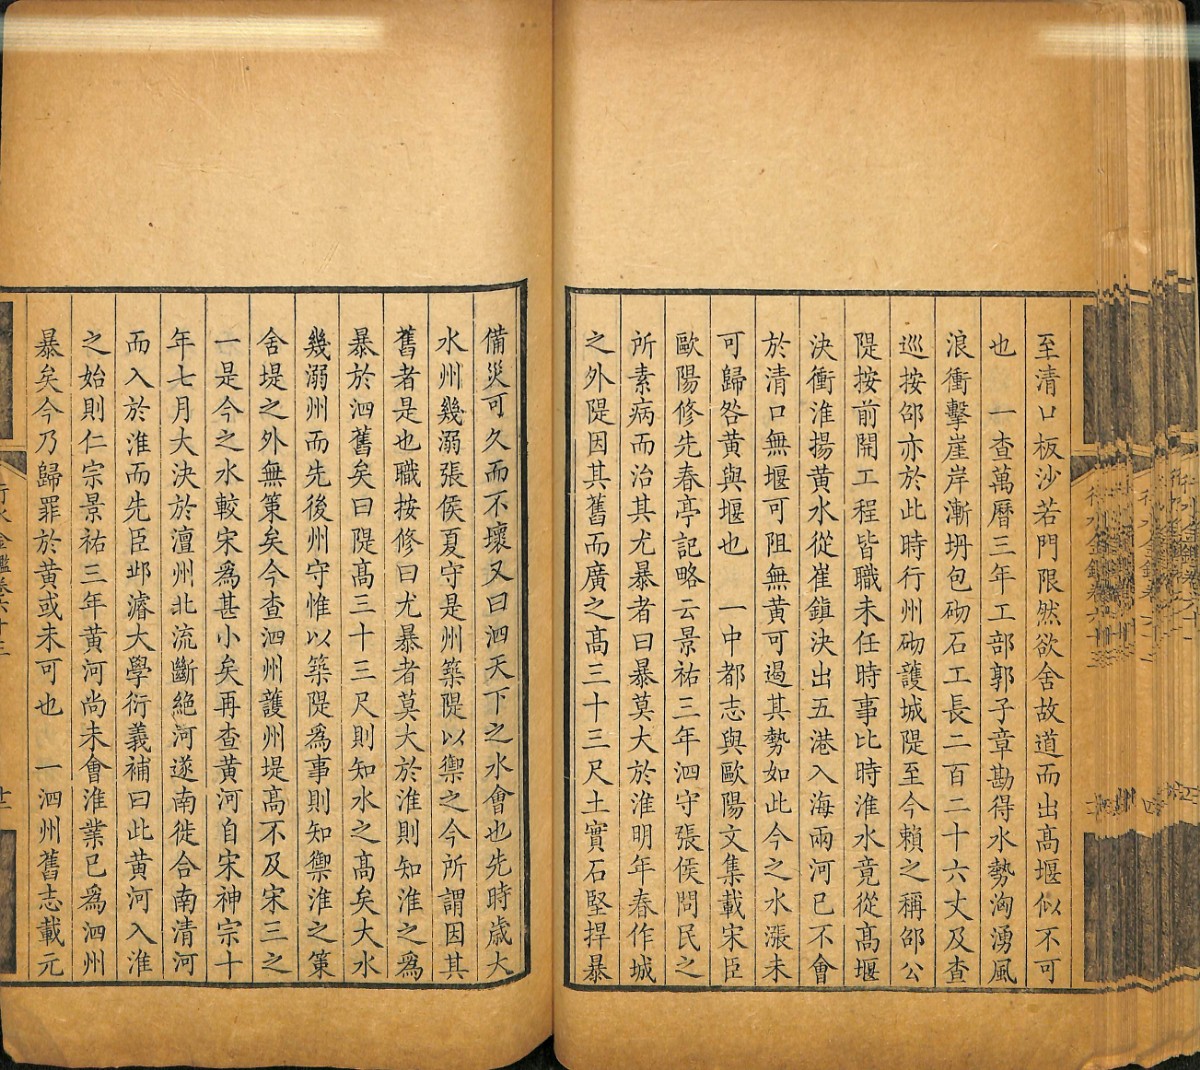 至清口板沙若門限然欲舍故道而出髙堰似不可
也　一查萬曆三年工部郭子章勘得水勢洶湧風
浪衝擊崖岸漸坍包砌石工長二百二十六丈及查
巡按邵亦於此時行州砌護城隄至今賴之稱邵公
隄按前開工程皆職未任時事比時淮水竟從髙堰
決衝淮揚黃水從崔鎮決出五港入海兩河已不會
於清口無堰可阻無黃可遏其勢如此今之水漲未
可歸咎黃與堰也　一中都志與歐陽文集載宋臣
歐陽修先春亭記略云景祐三年泗守張侯問民之
所素病而治其尤暴者曰暴莫大於淮明年春作城
之外隄因其舊而廣之髙三十三尺土實石堅捍暴
備災可久而不壞又曰泗天下之水會也先時歲大
水州幾溺張侯夏守是州築隄以禦之今所謂因其
舊者是也職按修曰尤暴者莫大於淮則知淮之爲
暴於泗舊矣曰隄髙三十三尺則知水之髙矣大水
幾溺州而先後州守惟以築隄爲事則知禦淮之策
舍堤之外無策矣今查泗州護州堤髙不及宋三之
一是今之水較宋爲甚小矣再查黃河自宋神宗十
年七月大決於澶州北流斷絕河遂南徙合南清河
而入於淮而先臣邱濬大學衍義補曰此黃河入淮
之始則仁宗景祐三年黃河尚未會淮業已爲泗州
暴矣今乃歸罪於黃或未可也　一泗州舊志載元
行水金鑑卷六十三